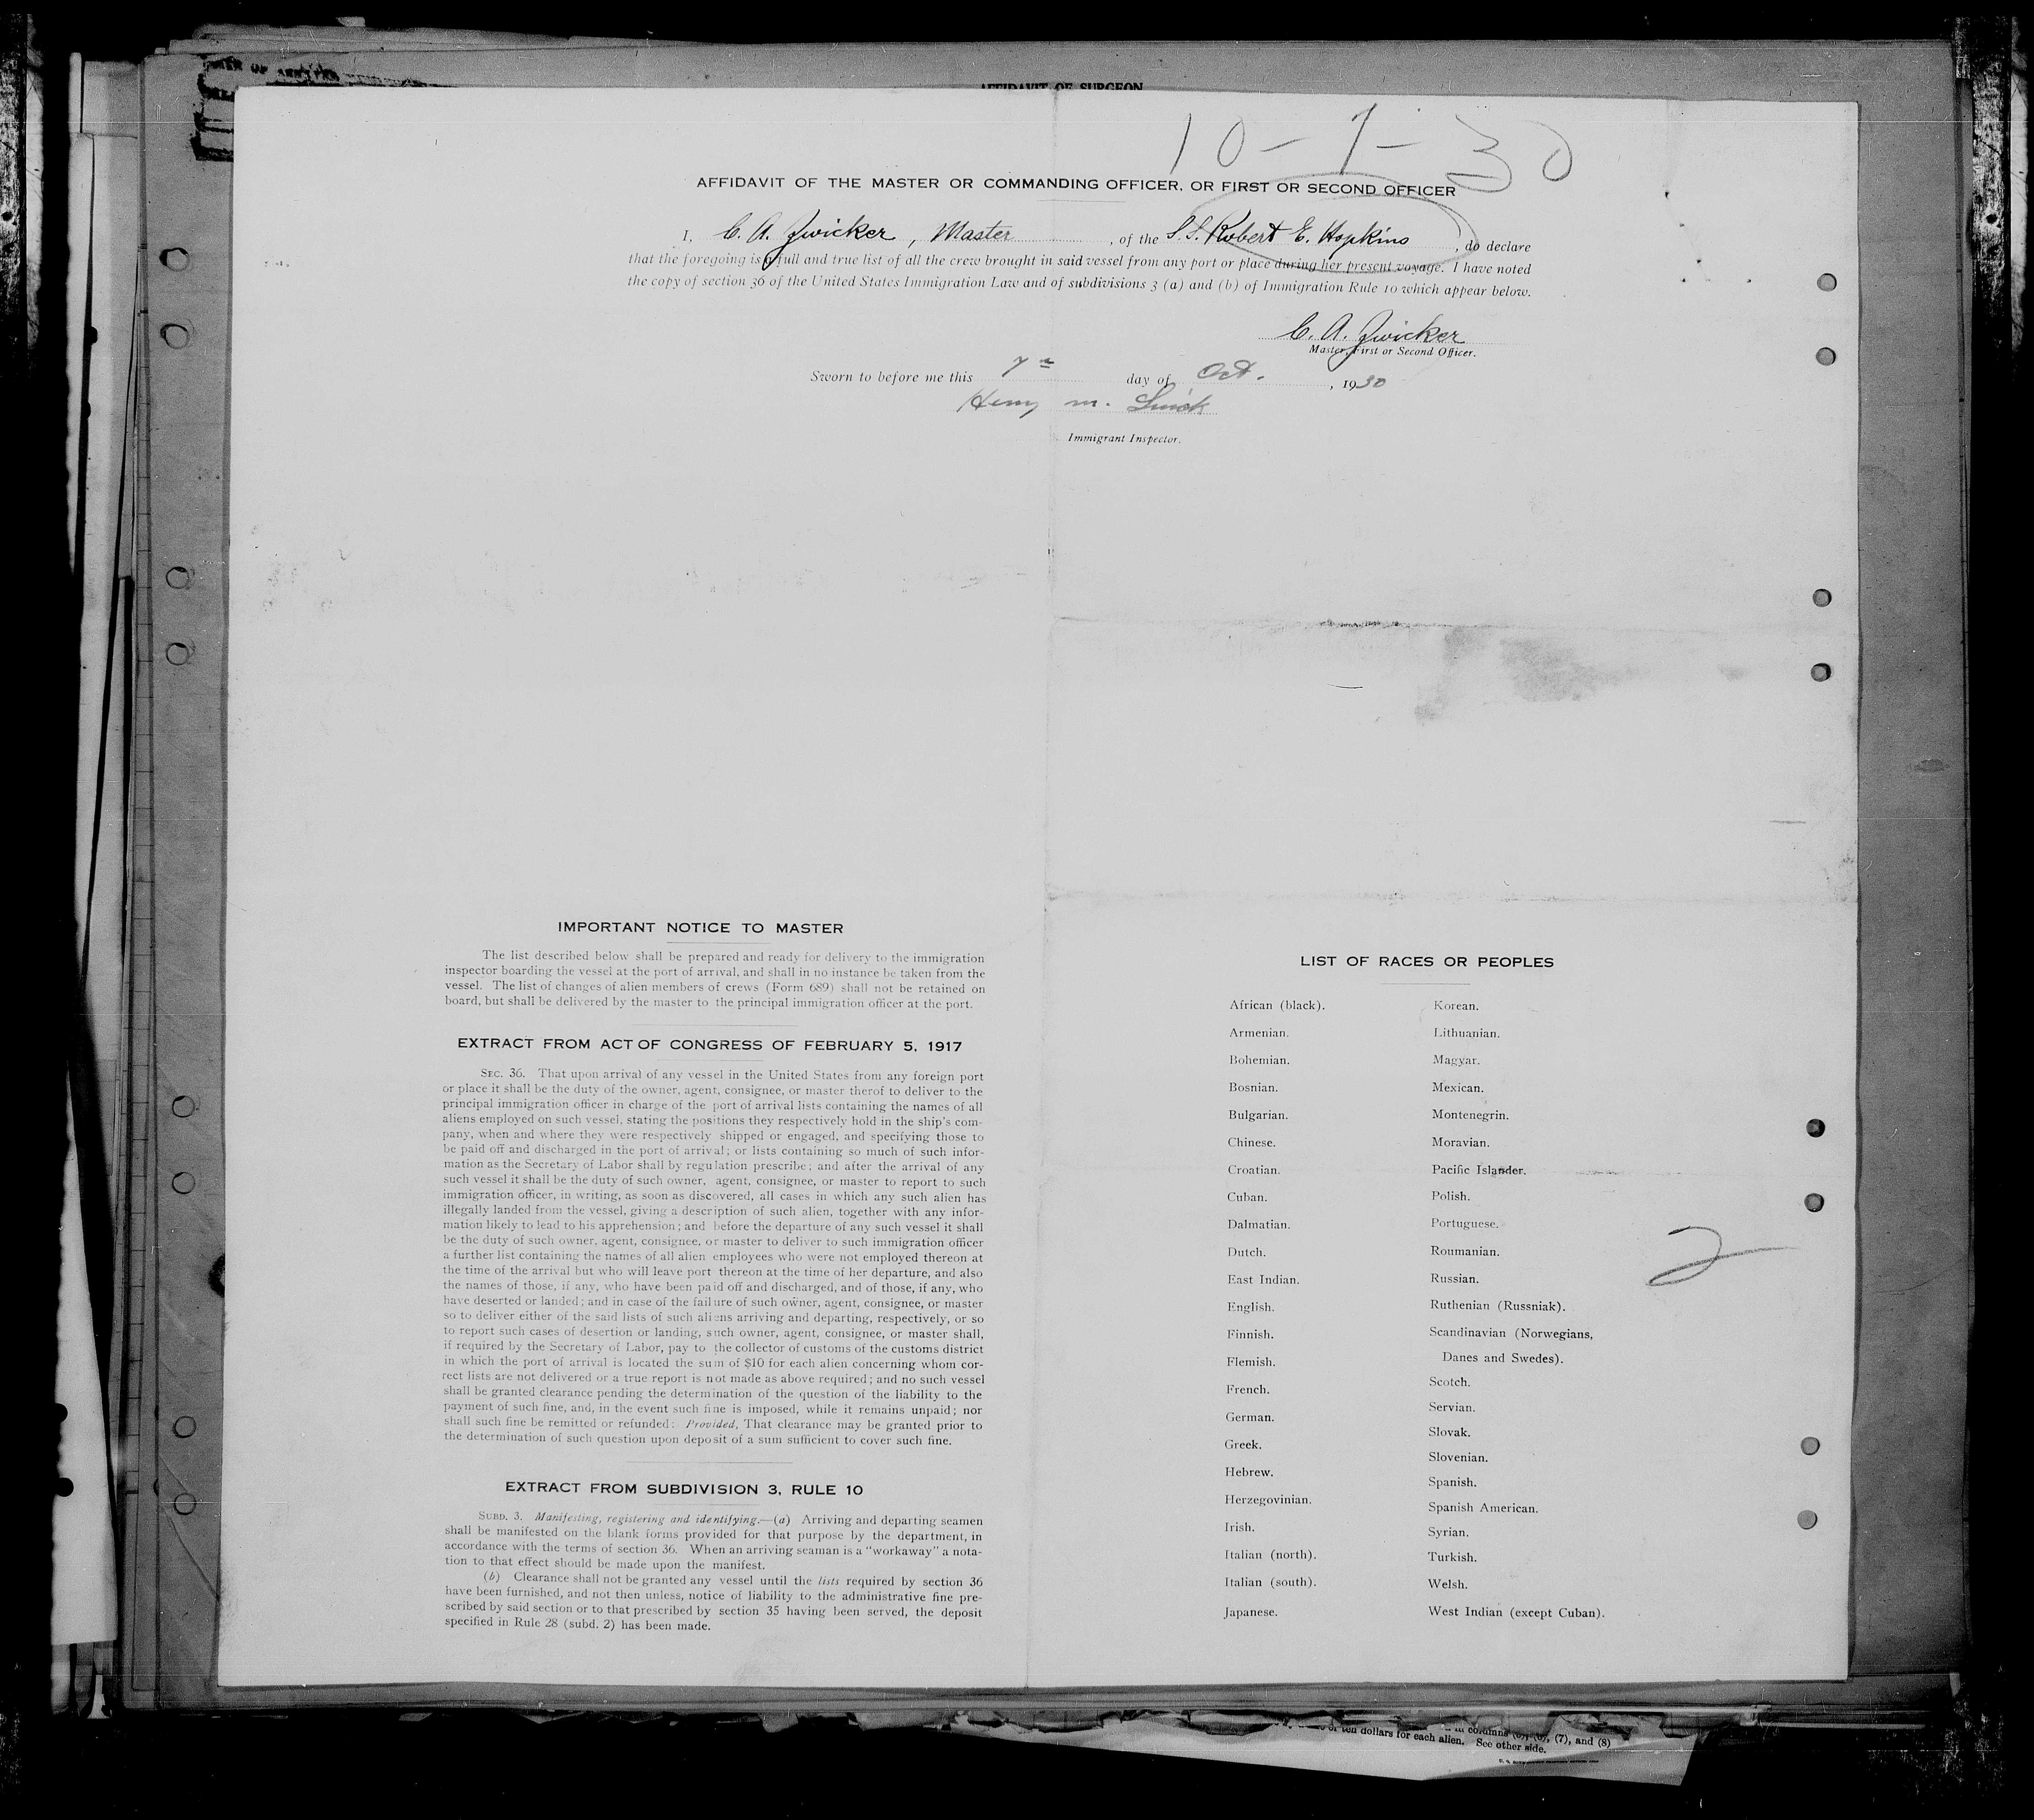 AFFIDAVIT OF SURGEON
10-7-30
AFFIDAVIT OF THE MASTER OR COMMANDING OFFICER, OR FIRST OR SECOND OFFICER
I, C. A. Zwicker, Master, of the S.S. Robert E. Hopkins, do declare
that the foregoing is a full and true list of all the crew brought in said vessel from any port or place during her present voyage. I have noted
the copy of section 36 of the United States Immigration Law and of subdivisions 3 (a) and (b) of Immigration Rule 10 which appear below.
C. A. Zwicker
Master, First or Second Officer.
Sworn to before me this 7th day of Oct., 1930
Henry M.
Immigrant Inspector.
IMPORTANT NOTICE TO MASTER
The list described below shall be prepared and ready for delivery to the immigration
inspector boarding the vessel at the port of arrival, and shall in no instance be taken from the
vessel. The list of changes of alien members of crews (Form 689) shall not be retained on
board, but shall be delivered by the master to the principal immigration officer at the port.
EXTRACT FROM ACT OF CONGRESS OF FEBRUARY 5, 1917
SEC. 36. That upon arrival of any vessel in the United States from any foreign port
or place it shall be the duty of the owner, agent, consignee, or master therof to deliver to the
principal immigration officer in charge of the port of arrival lists containing the names of all
aliens employed on such vessel, stating the positions they respectively hold in the ship's com-
pany, when and where they were respectively shipped or engaged, and specifying those to
be paid off and discharged in the port of arrival; or lists containing so much of such infor-
mation as the Secretary of Labor shall by regulation prescribe; and after the arrival of any
such vessel it shall be the duty of such owner, agent, consignee, or master to report to such
immigration officer, in writing, as soon as discovered, all cases in which any such alien has
illegally landed from the vessel, giving a description of such alien, together with any infor-
mation likely to lead to his apprehension; and before the departure of any such vessel it shall
be the duty of such owner, agent, consignee, or master to deliver to such immigration officer
a further list containing the names of all alien employees who were not employed thereon at
the time of the arrival but who will leave port thereon at the time of her departure, and also
the names of those, if any, who have been paid off and discharged, and of those, if any, who
have deserted or landed; and in case of the failure of such owner, agent, consignee, or master
so to deliver either of the said lists of such aliens arriving and departing, respectively, or so
to report such cases of desertion or landing, such owner, agent, consignee, or master shall,
if required by the Secretary of Labor, pay to the collector of customs of the customs district
in which the port of arrival is located the sum of $10 for each alien concerning whom cor-
rect lists are not delivered or a true report is not made as above required; and no such vessel
shall be granted clearance pending the determination of the question of the liability to the
payment of such fine, and, in the event such fine is imposed, while it remains unpaid; nor
shall such fine be remitted or refunded: Provided, That clearance may be granted prior to
the determination of such question upon deposit of a sum sufficient to cover such fine.
EXTRACT FROM SUBDIVISION 3, RULE 10
SUBD. 3. Manifesting, registering and identifying.—(a) Arriving and departing seamen
shall be manifested on the blank forms provided for that purpose by the department, in
accordance with the terms of section 36. When an arriving seaman is a "workaway" a nota-
tion to that effect should be made upon the manifest.
(b) Clearance shall not be granted any vessel until the lists required by section 36
have been furnished, and not then unless, notice of liability to the administrative fine pre-
scribed by said section or to that prescribed by section 35 having been served, the deposit
specified in Rule 28 (subd. 2) has been made.
LIST OF RACES OR PEOPLES
African (black).
Armenian.
Bohemian.
Bosnian.
Bulgarian.
Chinese.
Croatian.
Cuban.
Dalmatian.
Dutch.
East Indian.
English.
Finnish.
Flemish.
French.
German.
Greek.
Hebrew.
Herzegovinian.
Irish.
Italian (north).
Italian (south).
Japanese.
Korean.
Lithuanian.
Magyar.
Mexican.
Montenegrin.
Moravian.
Pacific Islander.
Polish.
Portuguese.
Roumanian.
Russian.
Ruthenian (Russniak).
Scandinavian (Norwegians,
Danes and Swedes).
Scotch.
Servian.
Slovak.
Slovenian.
Spanish.
Spanish American.
Syrian.
Turkish.
Welsh.
West Indian (except Cuban).
2
in columns (7), and (8)
of ten dollars for each alien. See other side.